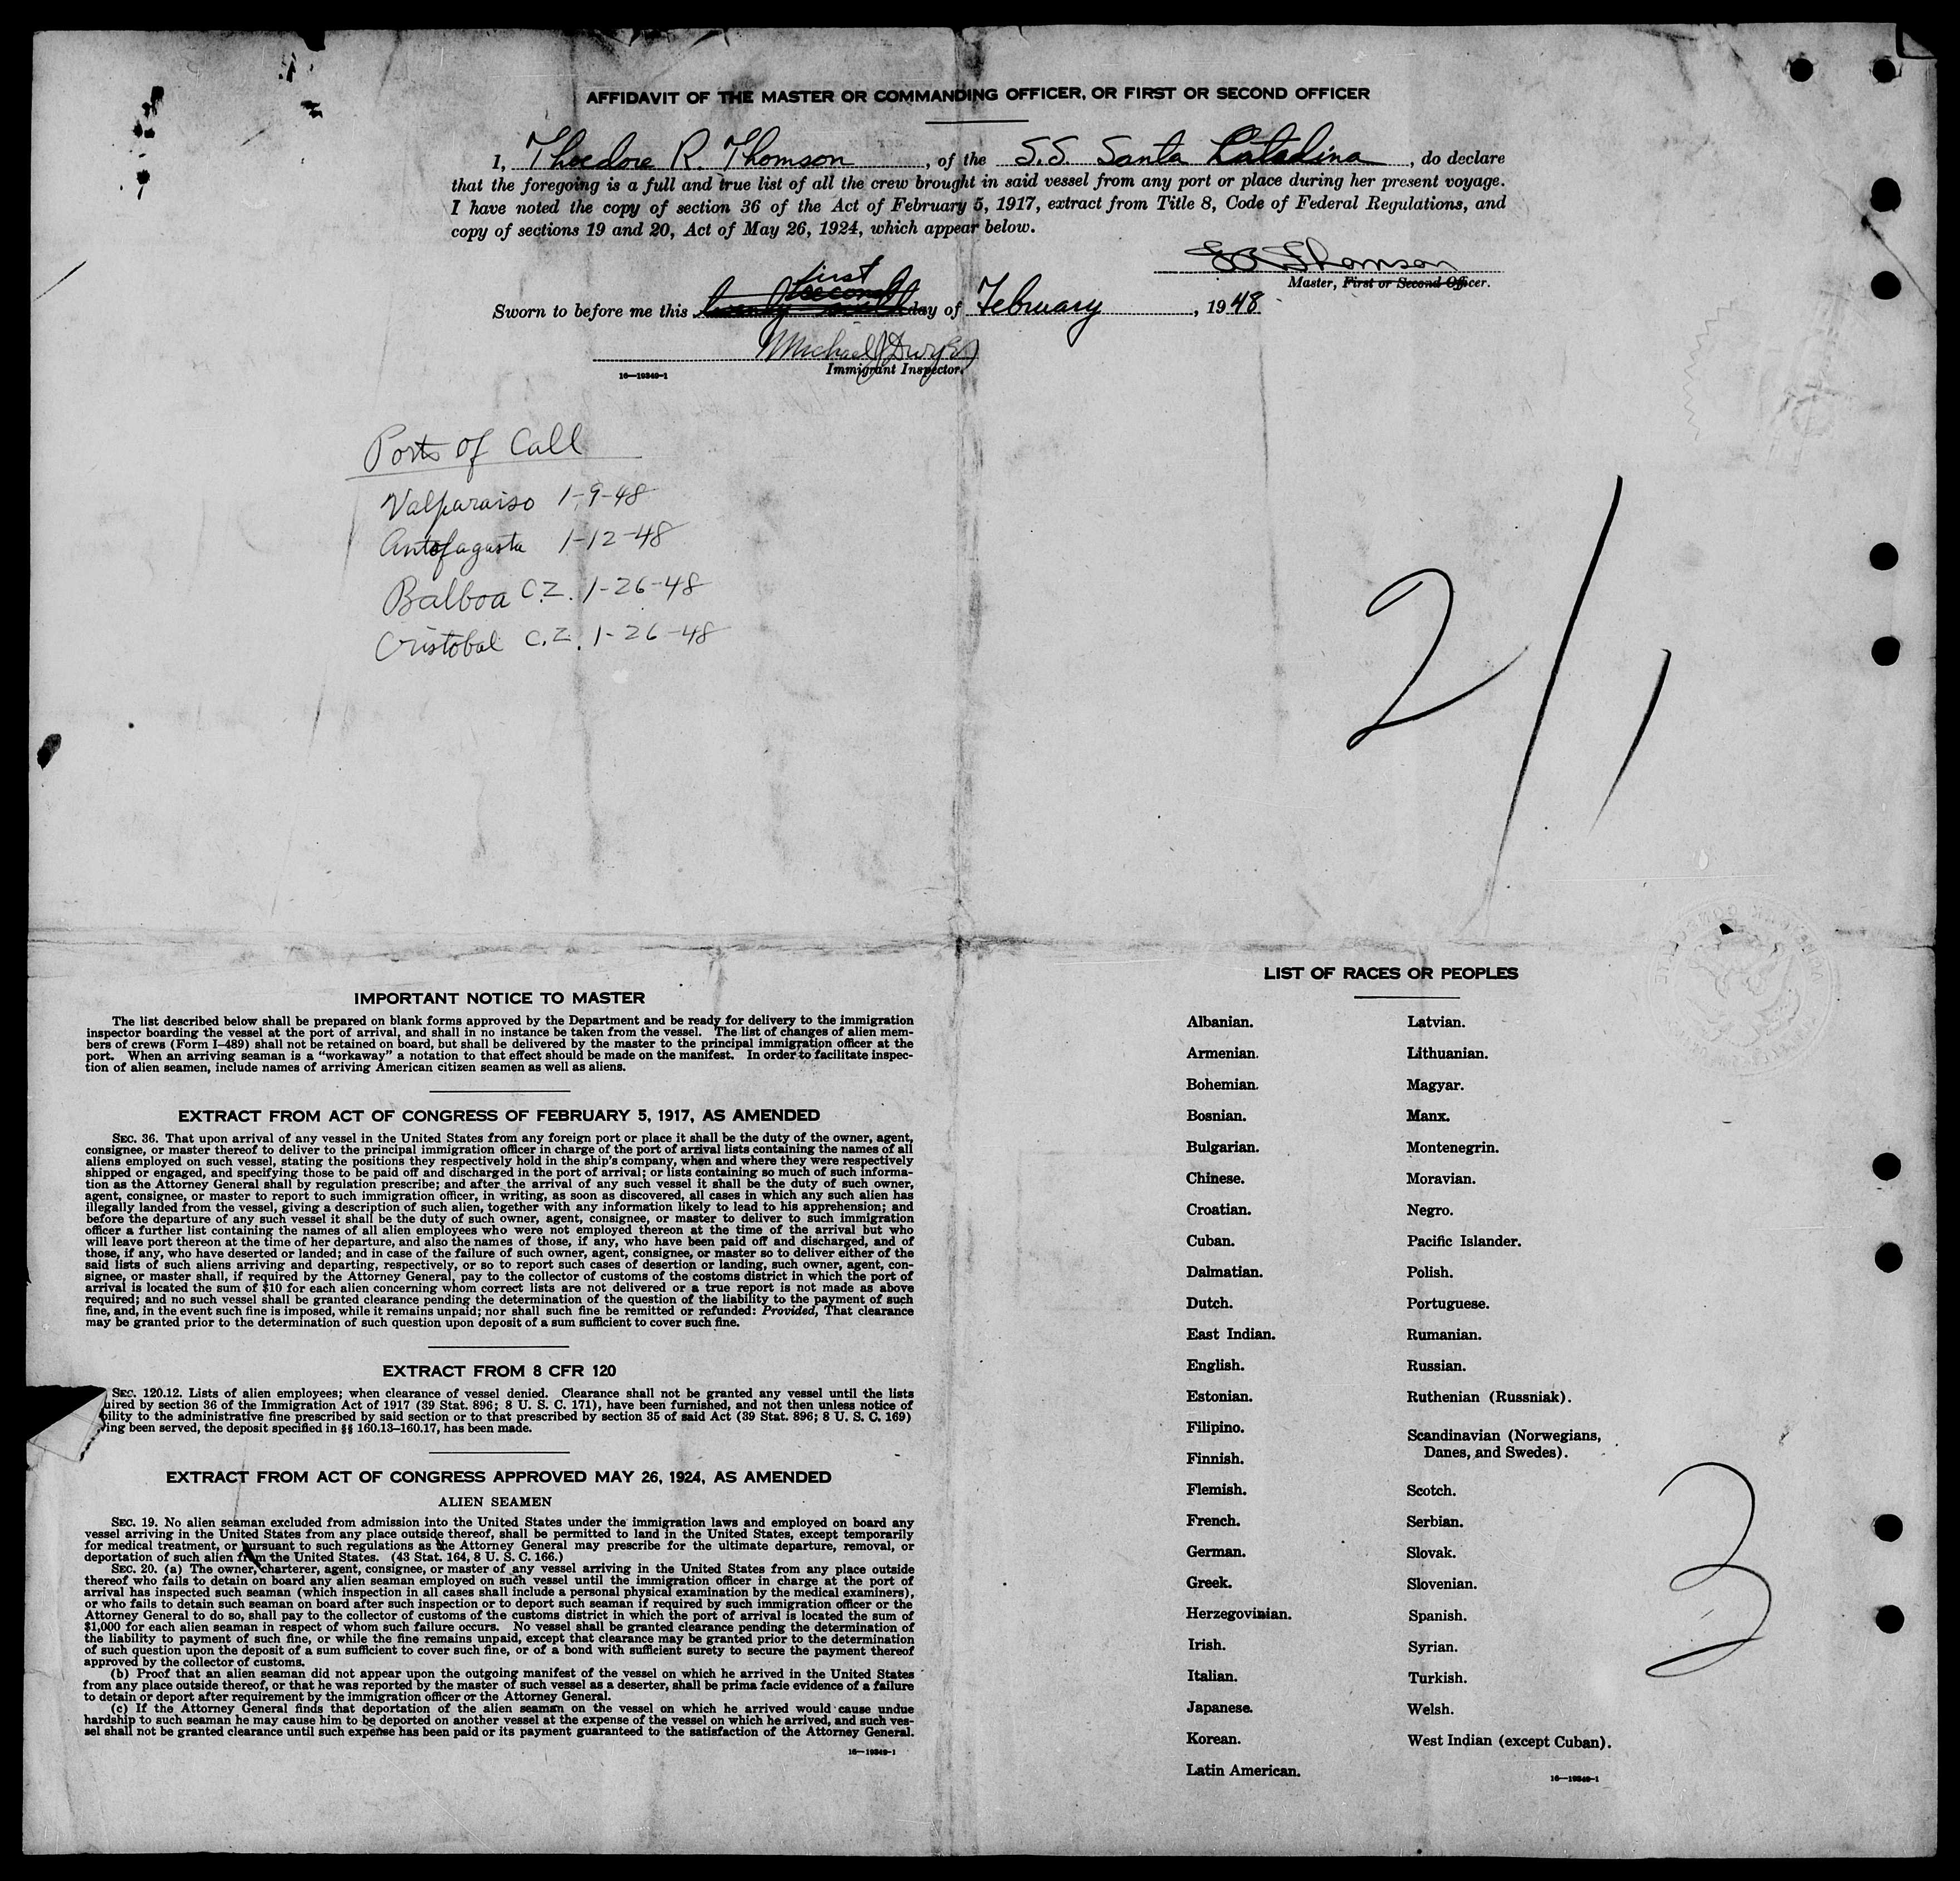 AFFIDAVIT OF THE MASTER OR COMMANDING OFFICER, OR FIRST OR SECOND OFFICER
I, Theodore R. Thomson, of the S.S. Santa Catalina, do declare
that the foregoing is a full and true list of all the crew brought in said vessel from any port or place during her present voyage.
I have noted the copy of section 36 of the Act of February 5, 1917, extract from Title 8, Code of Federal Regulations, and
copy of sections 19 and 20, Act of May 26, 1924, which appear below.
Thomson
Master, First or Second Officer.
first
second
Sworn to before me this day of February, 1948.
Michael J Dwyer
16—19349-1 Immigrant Inspector.
Ports of Call
Valparaiso 1-9-48
Antofagasta 1-12-48
Balboa C.Z. 1-26-48
Cristobal C.Z. 1-26-48
2/1
IMPORTANT NOTICE TO MASTER
The list described below shall be prepared on blank forms approved by the Department and be ready for delivery to the immigration
inspector boarding the vessel at the port of arrival, and shall in no instance be taken from the vessel. The list of changes of alien mem-
bers of crews (Form I-489) shall not be retained on board, but shall be delivered by the master to the principal immigration officer at the
port. When an arriving seaman is a "workaway" a notation to that effect should be made on the manifest. In order to facilitate inspec-
tion of alien seamen, include names of arriving American citizen seamen as well as aliens.
EXTRACT FROM ACT OF CONGRESS OF FEBRUARY 5, 1917, AS AMENDED
SEC. 36. That upon arrival of any vessel in the United States from any foreign port or place it shall be the duty of the owner, agent,
consignee, or master thereof to deliver to the principal immigration officer in charge of the port of arrival lists containing the names of all
aliens employed on such vessel, stating the positions they respectively hold in the ship's company, when and where they were respectively
shipped or engaged, and specifying those to be paid off and discharged in the port of arrival; or lists containing so much of such informa-
tion as the Attorney General shall by regulation prescribe; and after the arrival of any such vessel it shall be the duty of such owner,
agent, consignee, or master to report to such immigration officer, in writing, as soon as discovered, all cases in which any such alien has
illegally landed from the vessel, giving a description of such alien, together with any information likely to lead to his apprehension; and
before the departure of any such vessel it shall be the duty of such owner, agent, consignee, or master to deliver to such immigration
officer a further list containing the names of all alien employees who were not employed thereon at the time of the arrival but who
will leave port thereon at the time of her departure, and also the names of those, if any, who have been paid off and discharged, and of
those, if any, who have deserted or landed; and in case of the failure of such owner, agent, consignee, or master so to deliver either of the
said lists of such aliens arriving and departing, respectively, or so to report such cases of desertion or landing, such owner, agent, con-
signee, or master shall, if required by the Attorney General, pay to the collector of customs of the costoms district in which the port of
arrival is located the sum of $10 for each alien concerning whom correct lists are not delivered or a true report is not made as above
required; and no such vessel shall be granted clearance pending the determination of the question of the liability to the payment of such
fine, and, in the event such fine is imposed, while it remains unpaid; nor shall such fine be remitted or refunded: Provided, That clearance
may be granted prior to the determination of such question upon deposit of a sum sufficient to cover such fine.
EXTRACT FROM 8 CFR 120
SEC. 120.12. Lists of alien employees; when clearance of vessel denied. Clearance shall not be granted any vessel until the lists
uired by section 36 of the Immigration Act of 1917 (39 Stat. 896; 8 U. S. C. 171), have been furnished, and not then unless notice of
bility to the administrative fine prescribed by said section or to that prescribed by section 35 of said Act (39 Stat. 896; 8 U. S. C. 169)
ving been served, the deposit specified in §§ 160.13–160.17, has been made.
EXTRACT FROM ACT OF CONGRESS APPROVED MAY 26, 1924, AS AMENDED
ALIEN SEAMEN
SEC. 19. No alien seaman excluded from admission into the United States under the immigration laws and employed on board any
vessel arriving in the United States from any place outside thereof, shall be permitted to land in the United States, except temporarily
for medical treatment, or pursuant to such regulations as the Attorney General may prescribe for the ultimate departure, removal, or
deportation of such alien from the United States. (43 Stat. 164, 8 U. S. C. 166.)
SEC. 20. (a) The owner, charterer, agent, consignee, or master of any vessel arriving in the United States from any place outside
thereof who fails to detain on board any alien seaman employed on such vessel until the immigration officer in charge at the port of
arrival has inspected such seaman (which inspection in all cases shall include a personal physical examination by the medical examiners),
or who fails to detain such seaman on board after such inspection or to deport such seaman if required by such immigration officer or the
Attorney General to do so, shall pay to the collector of customs of the customs district in which the port of arrival is located the sum of
$1,000 for each alien seaman in respect of whom such failure occurs. No vessel shall be granted clearance pending the determination of
the liability to payment of such fine, or while the fine remains unpaid, except that clearance may be granted prior to the determination
of such question upon the deposit of a sum sufficient to cover such fine, or of a bond with sufficient surety to secure the payment thereof
approved by the collector of customs.
(b) Proof that an alien seaman did not appear upon the outgoing manifest of the vessel on which he arrived in the United States
from any place outside thereof, or that he was reported by the master of such vessel as a deserter, shall be prima facie evidence of a failure
to detain or deport after requirement by the immigration officer or the Attorney General.
(c) If the Attorney General finds that deportation of the alien seaman on the vessel on which he arrived would cause undue
hardship to such seaman he may cause him to be deported on another vessel at the expense of the vessel on which he arrived, and such ves-
sel shall not be granted clearance until such expense has been paid or its payment guaranteed to the satisfaction of the Attorney General.
16—19349-1
LIST OF RACES OR PEOPLES
Albanian.
Armenian.
Bohemian.
Bosnian.
Bulgarian.
Chinese.
Croatian.
Cuban.
Dalmatian.
Dutch.
East Indian.
English.
Estonian.
Filipino.
Finnish.
Flemish.
French.
German.
Greek.
Herzegovinian.
Irish.
Italian.
Japanese.
Korean.
Latin American.
Latvian.
Lithuanian.
Magyar.
Manx.
Montenegrin.
Moravian.
Negro.
Pacific Islander.
Polish.
Portuguese.
Rumanian.
Russian.
Ruthenian (Russniak).
Scandinavian (Norwegians,
Danes, and Swedes).
Scotch.
Serbian.
Slovak.
Slovenian.
Spanish.
Syrian.
Turkish.
Welsh.
West Indian (except Cuban).
16—19349-1
3